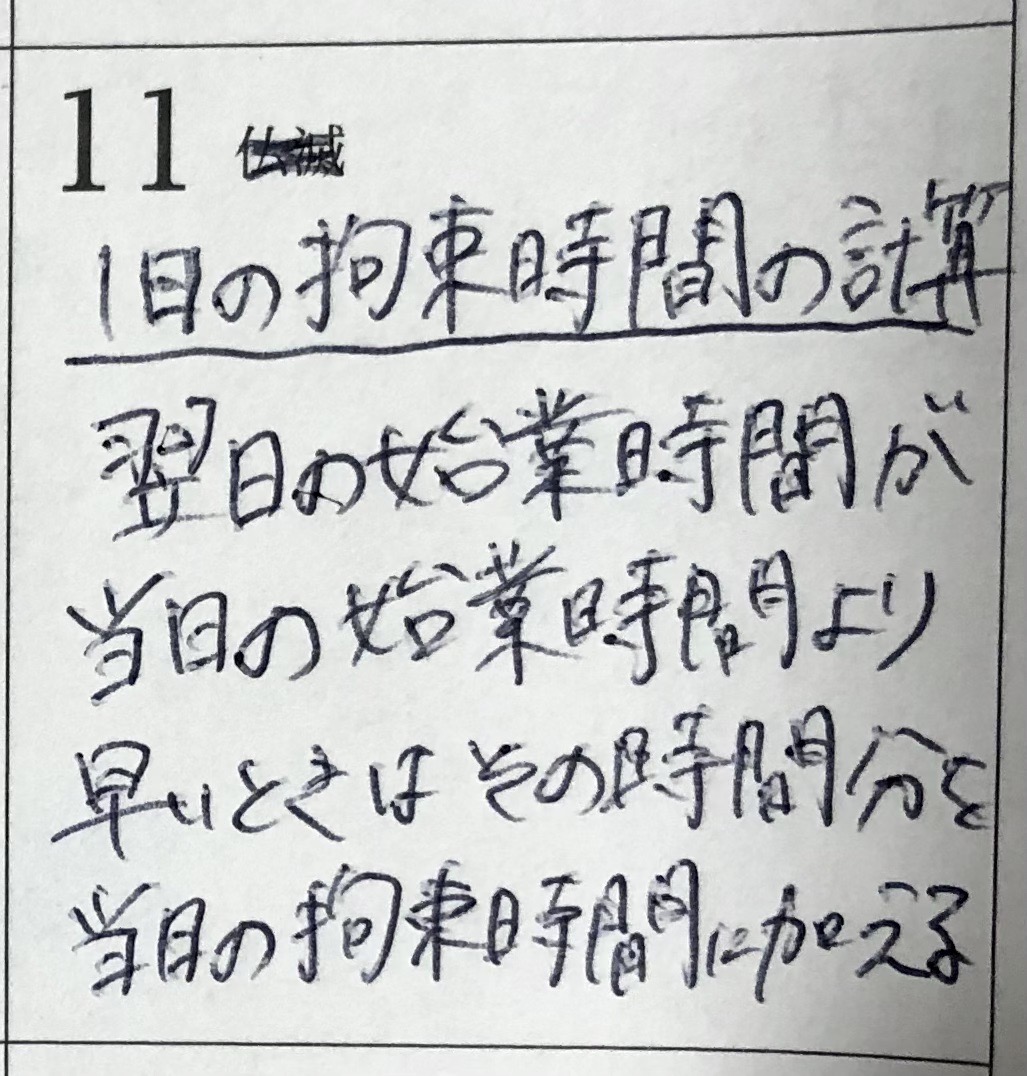 11 仏滅
1日の拘束時間の計算
翌日の始業時間が
当日の始業時間より
早いときはその時間分を
当日の拘束時間に加える